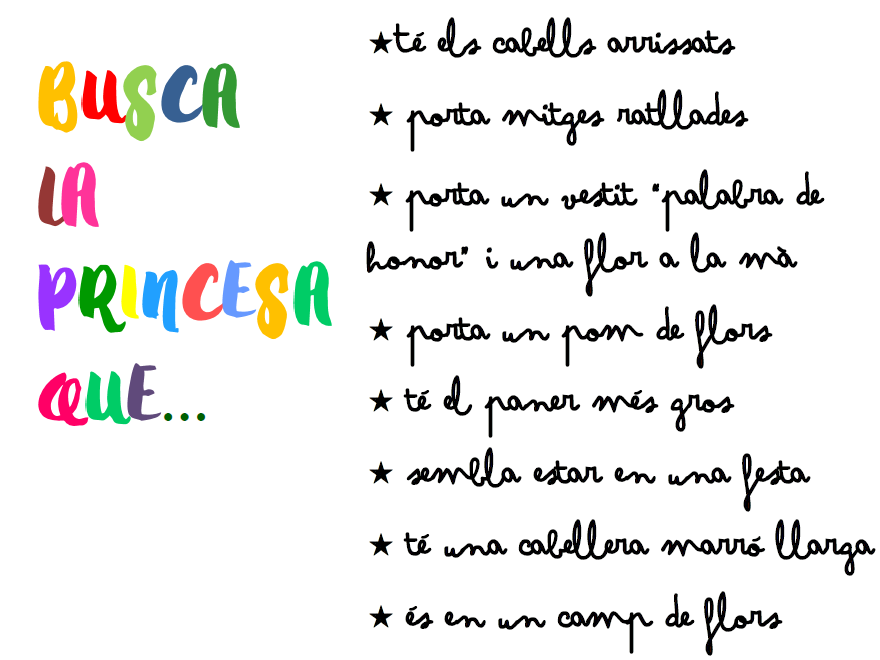 BUSCA
LA
PRINCESA
QUE...
★té els cabells arrissats
★ porta mitges ratllades
★ porta un vestit "palabra de
honor" i una flor a la mà
★ porta un pom de flors
★ té el paner més gros
★ sembla estar en una festa
★ té una cabellera marró llarga
★ és en un camp de flors